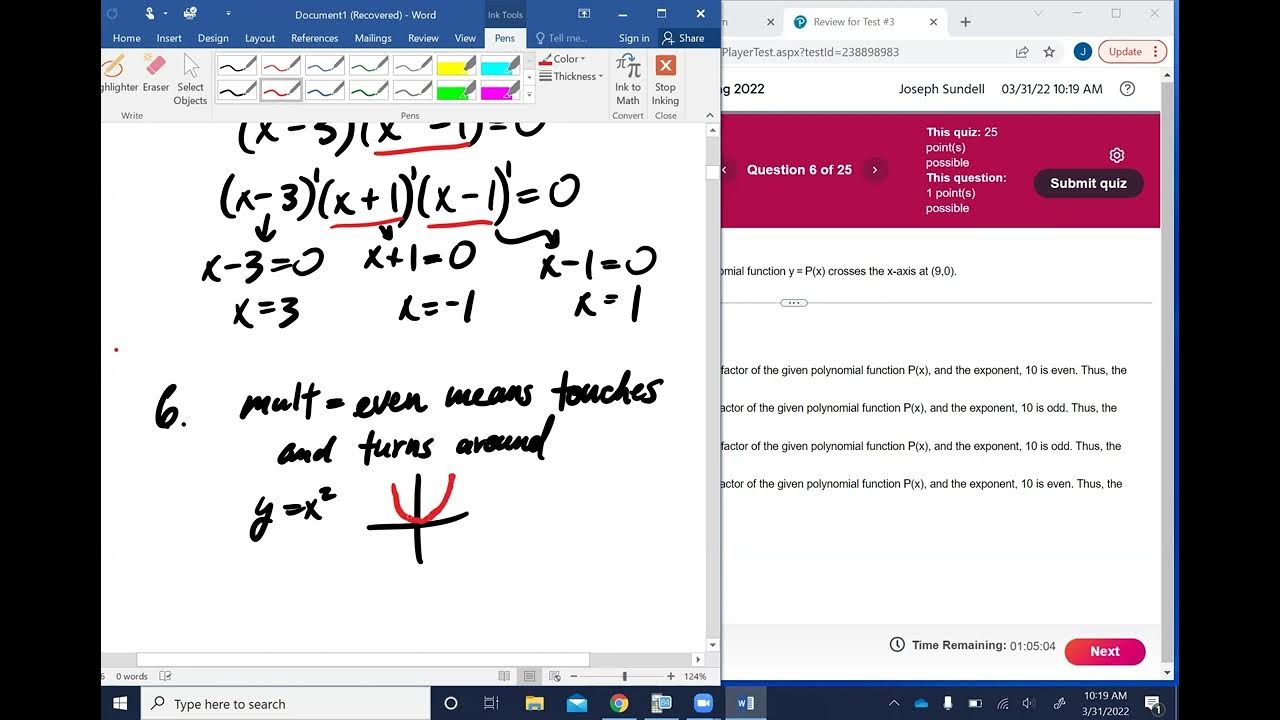 Document1 (Recovered) - Word
Ink Tools
Home Insert Design Layout References Mailings Review View Pens Tell me... Sign in Share
ghlighter Eraser Select Objects
Color
Thickness
Ink to Math
Stop Inking
Write Pens Convert Close
(x-3)(x -1)=0
(x-3)¹(x+1)¹(x-1)¹=0
x-3=0 x+1=0 x-1=0
x=3 x=-1 x=1
6. mult = even means touches
and turns around
y=x²
0 words 124%
Review for Test #3
PlayerTest.aspx?testId=238898983
J Update
g 2022 Joseph Sundell 03/31/22 10:19 AM
Question 6 of 25
This quiz: 25
point(s)
possible
This question:
1 point(s)
possible
Submit quiz
omial function y = P(x) crosses the x-axis at (9,0).
factor of the given polynomial function P(x), and the exponent, 10 is even. Thus, the
actor of the given polynomial function P(x), and the exponent, 10 is odd. Thus, the
factor of the given polynomial function P(x), and the exponent, 10 is odd. Thus, the
actor of the given polynomial function P(x), and the exponent, 10 is even. Thus, the
Time Remaining: 01:05:04 Next
Type here to search
10:19 AM
3/31/2022